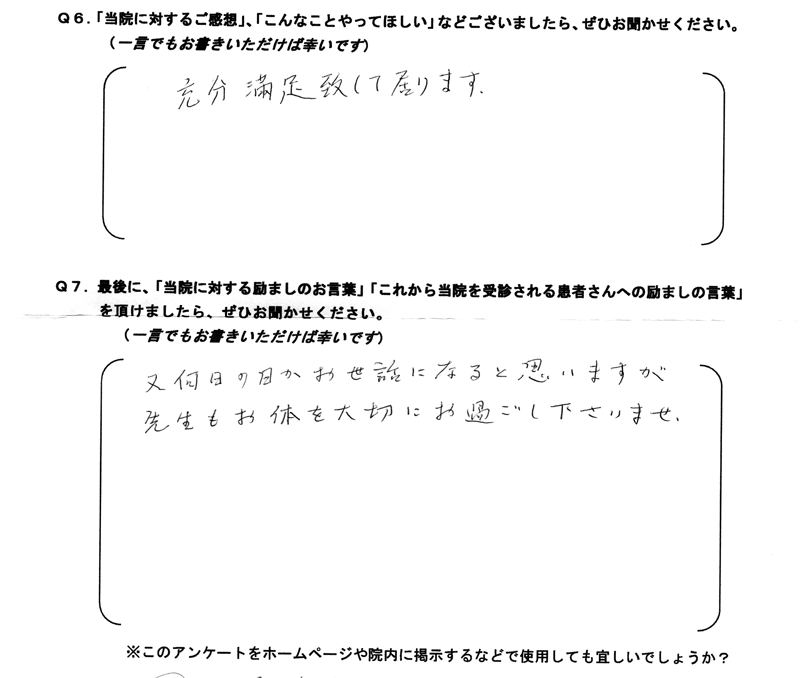 Ｑ６．「当院に対するご感想」、「こんなことやってほしい」などございましたら、ぜひお聞かせください。
（一言でもお書きいただけば幸いです）
充分満足致して居ります.
Ｑ７．最後に、「当院に対する励ましのお言葉」「これから当院を受診される患者さんへの励ましの言葉」
を頂けましたら、ぜひお聞かせください。
（一言でもお書きいただけば幸いです）
又何日の日かお世話になると思いますが
先生もお体を大切にお過ごし下さいませ.
※このアンケートをホームページや院内に掲示するなどで使用しても宜しいでしょうか？